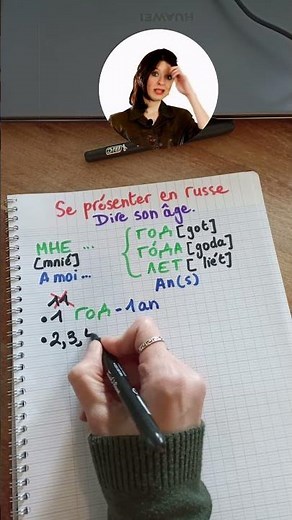 HUAWEI
Se présenter en russe
Dire son âge.
МНЕ ... { ГОД [got]
[mnié] ГÓДА [goda]
A moi... ЛЕТ [liét]
An(s)
11
• 1 ГОД - 1 an
• 2, 3, 4